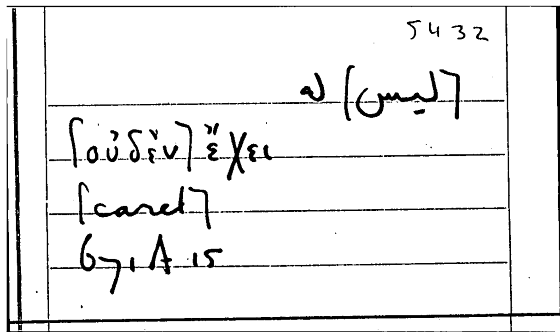 5432
[ليس] له
[οὐδὲν] ἔχει
[caret]
671A 15